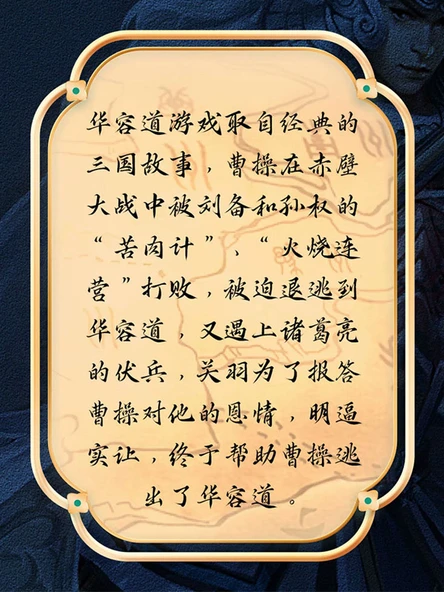 华容道游戏取自经典的
三国故事，曹操在赤壁
大战中被刘备和孙权的
“苦肉计”、“火烧连
营”打败，被迫退逃到
华容道，又遇上诸葛亮
的伏兵，关羽为了报答
曹操对他的恩情，明逼
实让，终于帮助曹操逃
出了华容道。